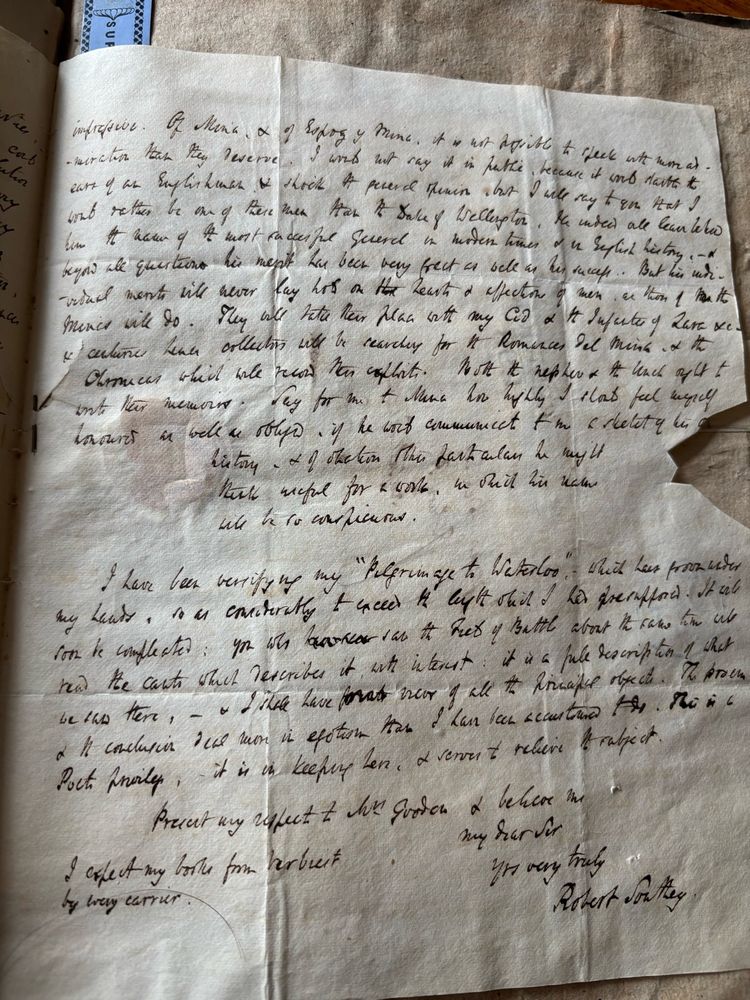 SUP
impressive. Of Mina, & of Espoz y Mina, it is not possible to speak with more ad-
-miration than they deserve. I would not say it in public, because it would startle the
ears of an Englishman & shock the general opinion, but I will say to you that I
would rather be one of these men than the Duke of Wellington. He indeed will leave behind
him the name of the most successful General in modern times & in English history, – &
beyond all question his merit has been very great as well as his success. But his indi-
-vidual merits will never lay hold on the hearts & affections of men, as those of the
Minas will do. They will take their place with my Cid & the Infantes of Lara &c –
& centuries hence collectors will be searching for the Romances del Mina, & the
Chronicas which will record their exploits. Both the nephew & the Uncle ought to
write their memoirs. Say for me to Mina how highly I should feel myself
honoured as well as obliged, if he would communicate to me a sketch of his
history, & of whatever other particulars he might
think useful for a work, in which his name
will be so conspicuous.
I have been versifying my "Pilgrimage to Waterloo", – which has grown under
my hands, so as considerably to exceed the length which I had presupposed. It will
soon be compleated: you who saw the Field of Battle about the same time will
read the canto which describes it with interest: it is a full description of what
we saw there, – & I shall have views of all the principal objects. The proem
& the conclusion deal more in egotism than I have been accustomed to do. This is a
Poets privilege, – it is in keeping here, & serves to relieve the subject.
Present my respects to Mrs Gooden & believe me
my dear Sir
Yrs very truly
Robert Southey.
I expect my books from Verbiest
by every carrier.